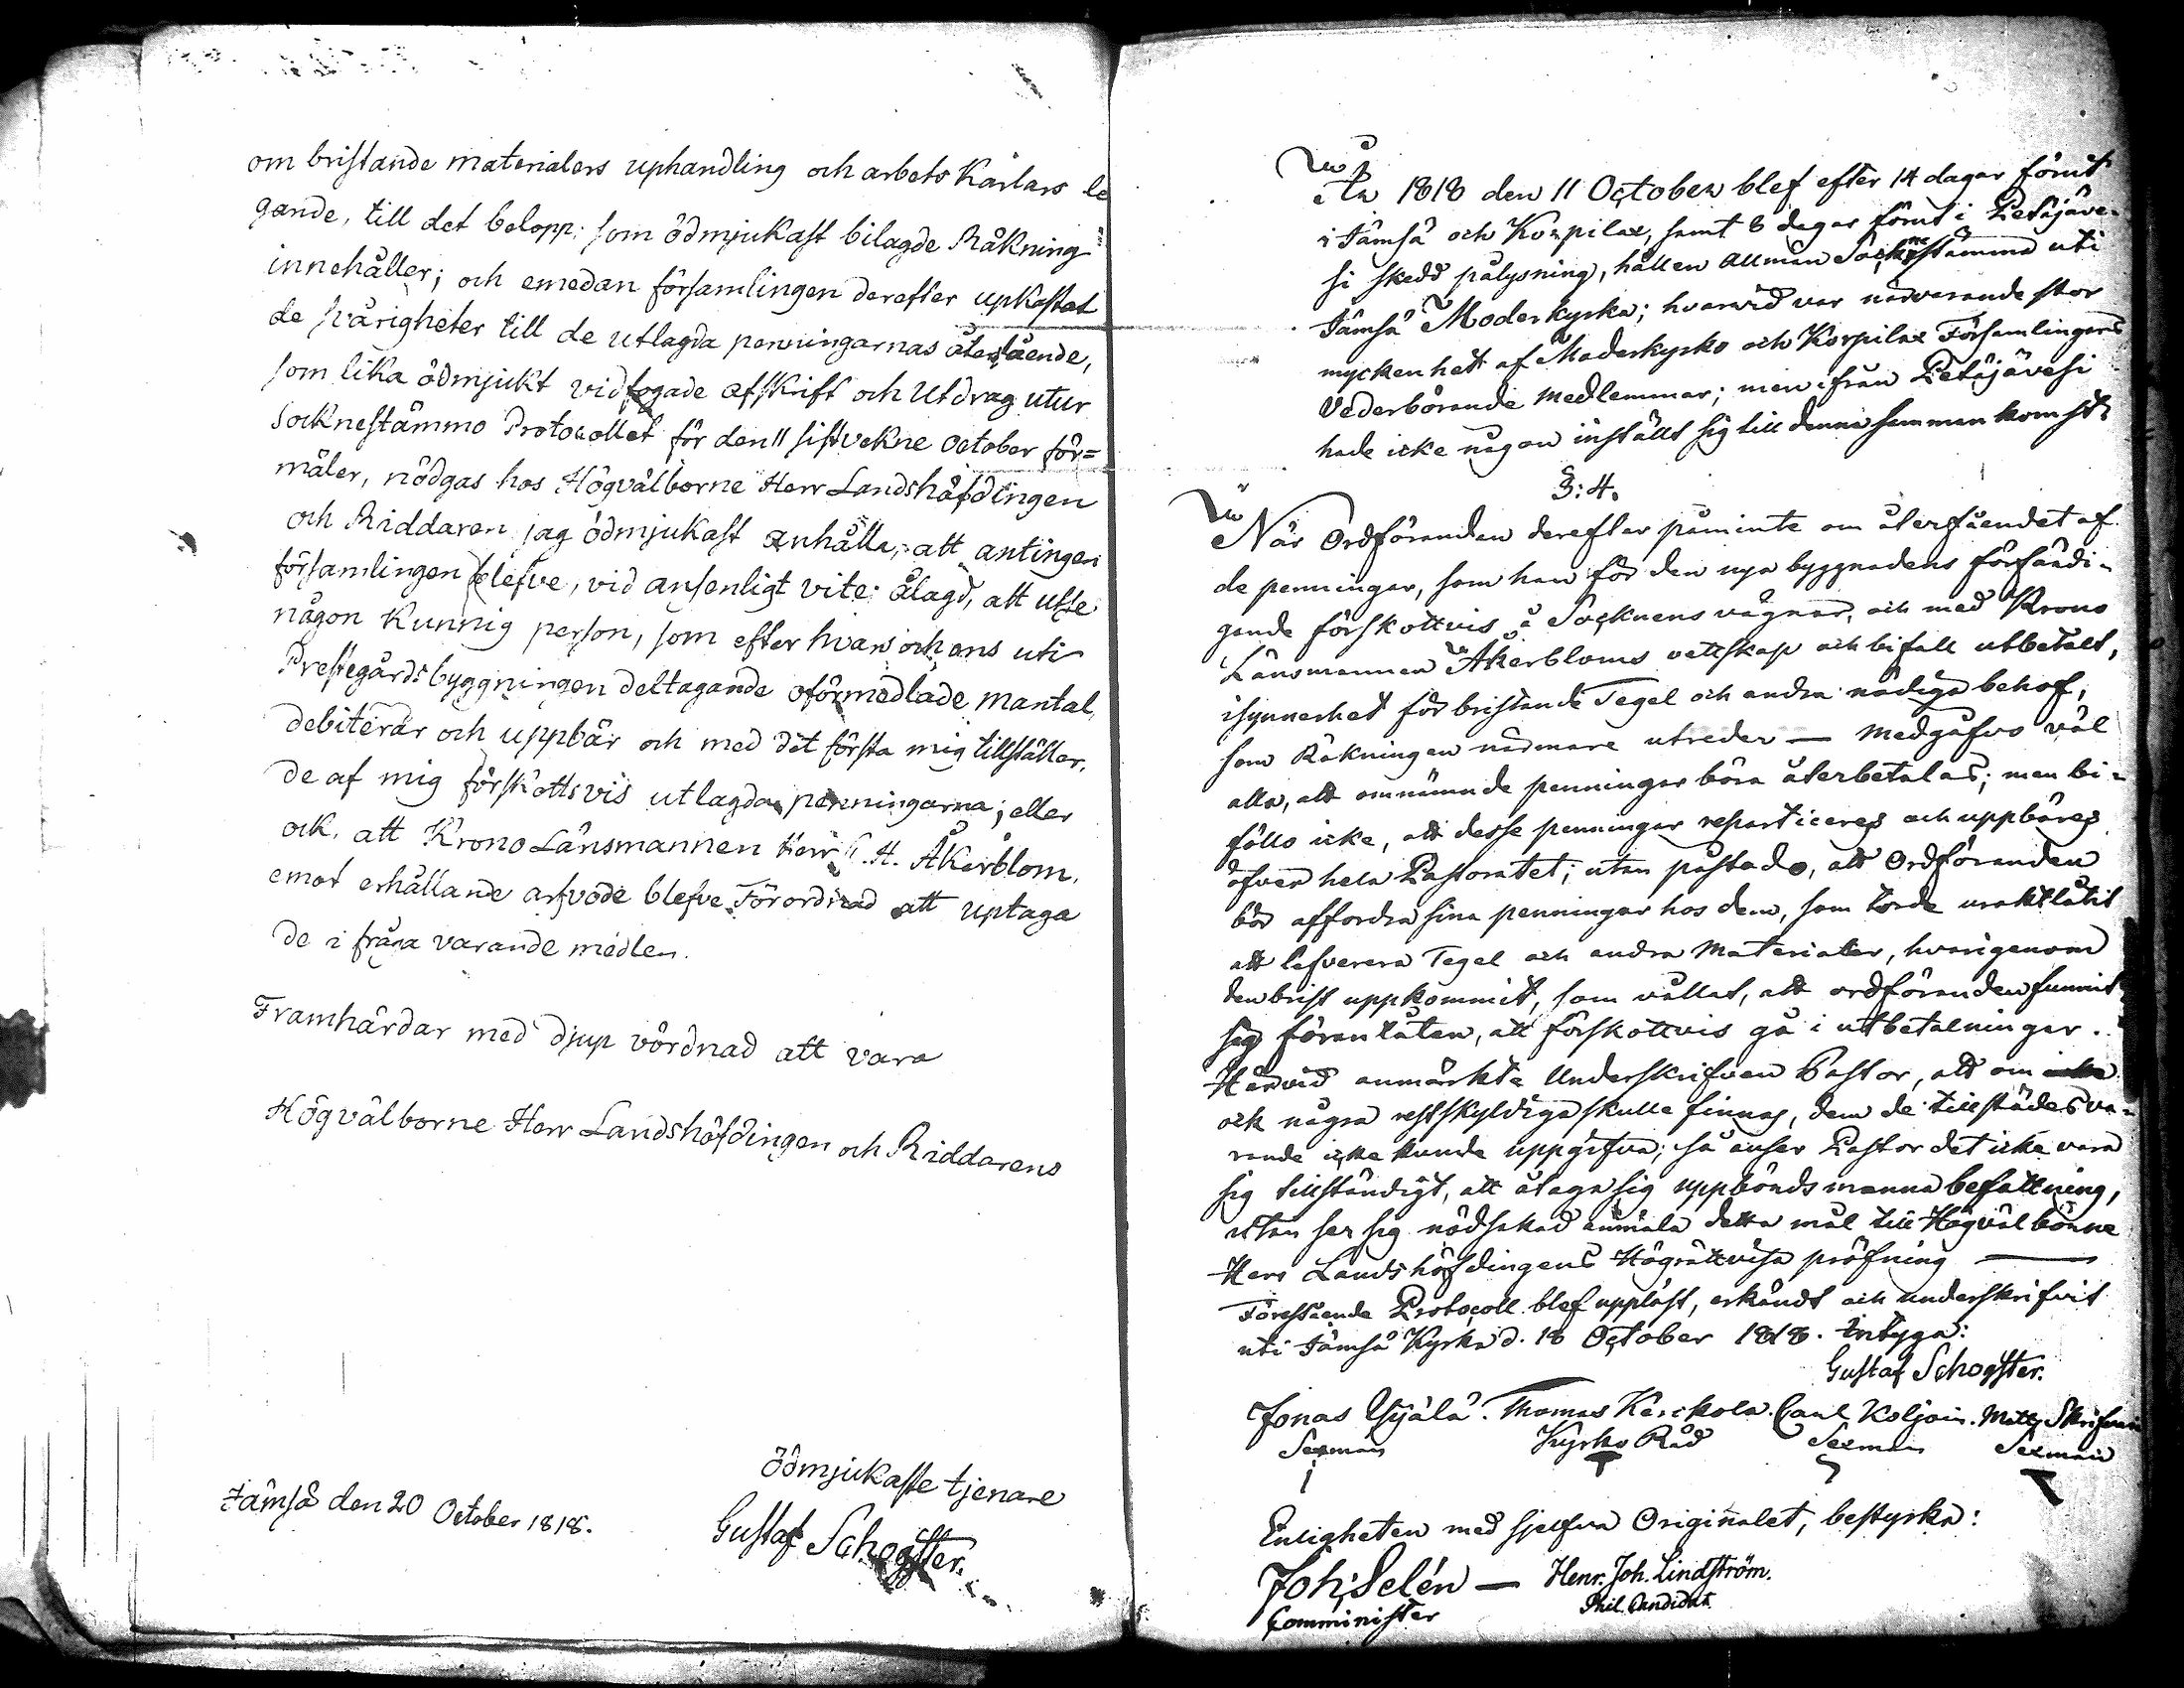 om bristande materialers uphandling och arbets Karlars le
gande, till det belopp; som ödmjukast bilagde Räkning
innehåller; och emedan församlingen derefter upkastat
de svårigheter till de utlagda penningarnas återstående,
som lika ödmjukt vidfogade afskrift och Utdrag utur
Socknestämmo Protocollet för den 11 sistvekne October för=
mäler, nödgas hos Högvälborne Herr Landshöfdingen
och Riddaren jag ödmjukast anhålla, att antingen
församlingen blefve, vid ansenligt vite ålagd, att utse
någon Kunnig person, som efter hvars och ens uti
Prestegårdsbyggningen deltagande oförmedlade mantal,
debiterar och uppbär och med det första mig tillställer,
de af mig förskottsvis utlagda penningarna; eller
ock, att Krono Länsmannen Herr A. H. Åkerblom,
emot erhållande arfvode blefve Förordnad att uptaga
de i fråga varande medlen.
Framhärdar med djup vördnad att vara
Högvälborne Herr Landshöfdingen och Riddarens
ödmjukaste tjenare
Jämsä den 20 October 1818.
Gustaf Schogster.
År 1818 den 11 October blef efter 14 dagar förut
i Jämsä och Korpilax, samt 8 dagar förut i Petäjäve-
si skedd pålysning, hållen allmän Socknestämma uti
Jämsä Moderkyrka; hvarvid var närvarande stor
myckenhet af Moderkyrko och Korpilax Församlingens
Vederbörande medlemmar; men ifrån Petäjävesi
hade icke någon inställt sig till denna sammankomst.
§: 4.
När Ordföranden derefter påminte om återfåendet af
de penningar, som han för den nya byggnadens förfärdi-
gande förskottvis å Socknens vägnar, och med Krono
Länsmannen Åkerbloms vettskap och bifall utbetalt,
isynnerhet för bristande Tegel och andra nödiga behof,
som Räkningen närmare utreder — medgåfvo väl
alla, att omnämnde penningar böra återbetalas; men bi-
föllo icke, att desse penningar reparticeres och uppbäres
öfver hela Pastoratet; utan påstodo, att Ordföranden
bör affordra sina penningar hos dem, som torde uraktlåtit
att lefverera Tegel och andra Materialer, hvarigenom
den brist uppkommit, som vållat, att ordföranden funnit
sig föranlåten, att förskottvis gå i utbetalningar.
Härvid anmärkte Underskrifven Pastor, att om
ock några restskyldiga skulle finnas, dem de tillstädesva-
rande icke kunde uppgifva; så anser Pastor det icke vara
sig tillständigt, att åtaga sig uppbördsmanna befattning,
utan ser sig nödsakad anmäla detta mål till Högvälborne
Herr Landshöfdingens Högrättvisa pröfning —
Förestående Protocoll blef uppläst, erkändt och underskrifvit
uti Jämsä Kyrka d. 18 October 1818. Intyga:
Gustaf Schogster.
Jonas Ysjälä. Thomas Kerckola. Carl Koljoin. Matts Skrifvar
Sexman Kyrko Råd Sexman Sexman
Enligheten med sjelfva Originalet, bestyrka:
Joh: Selén — Henr. Joh. Lindström.
Comminister Phil. Candidat